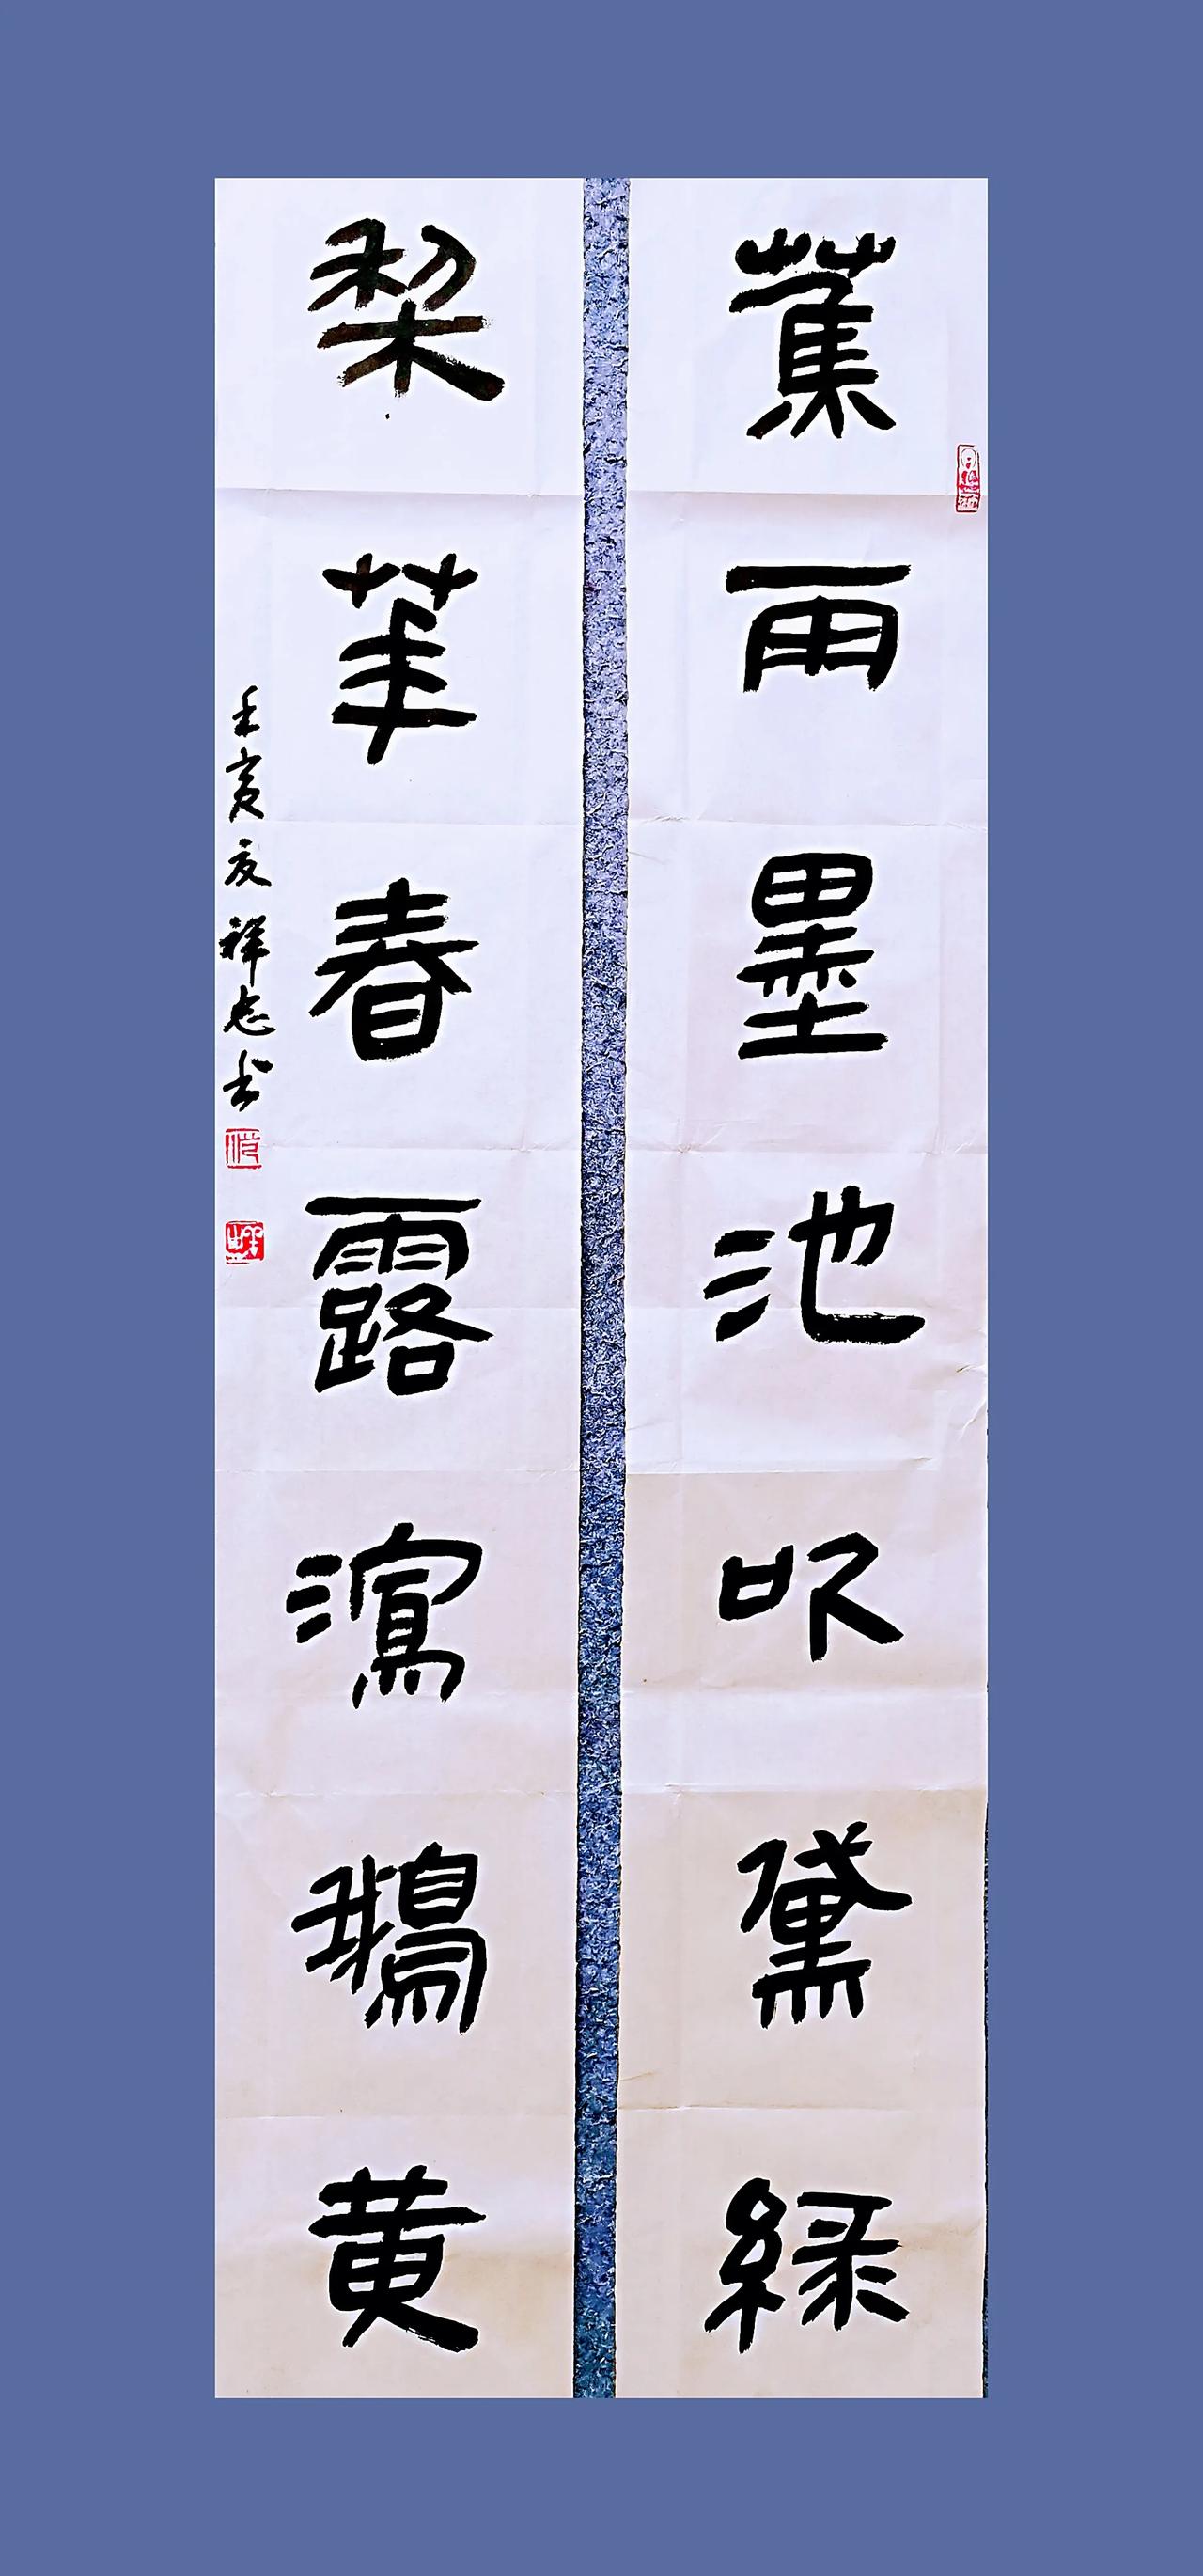 蕉雨墨池吹黛緑
梨華春露瀉鵝黄
壬寅夏祥志书